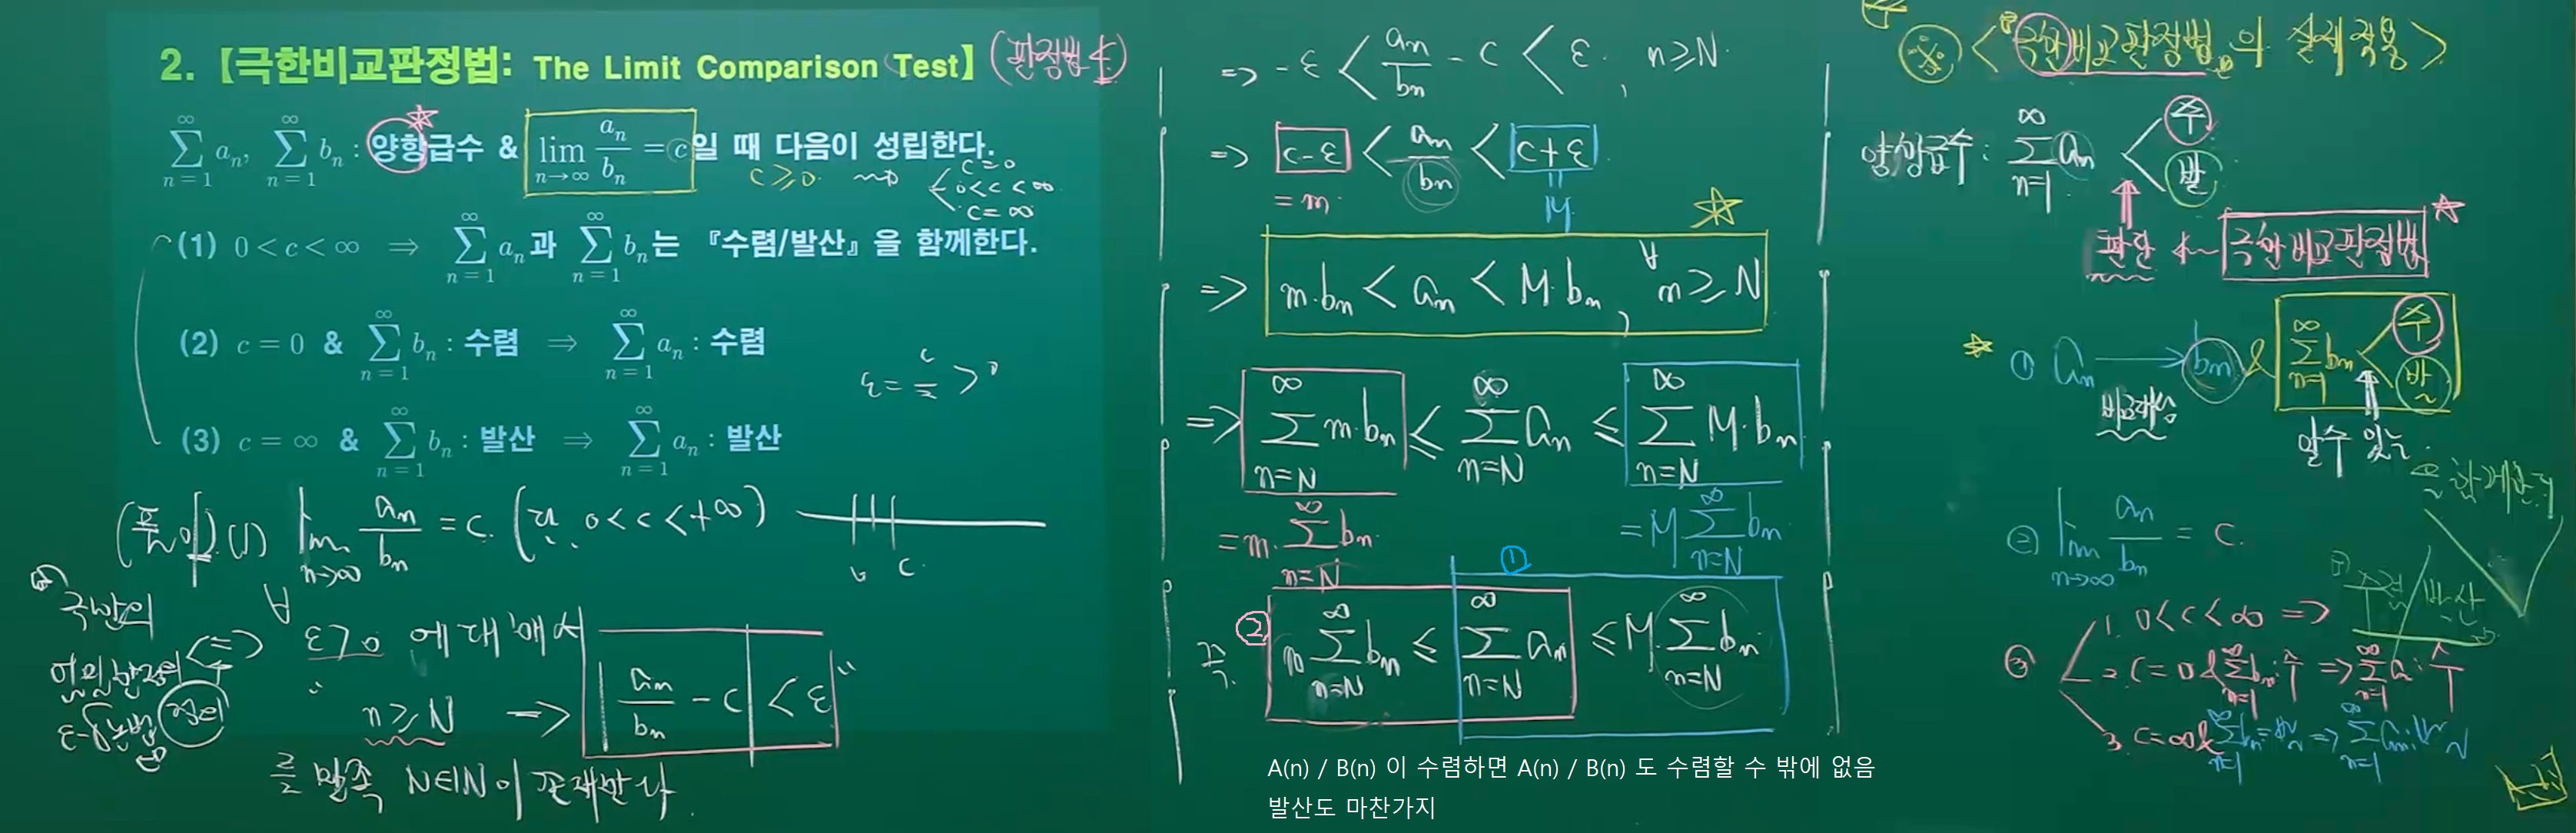 2. 【극한비교판정법: The Limit Comparison Test】 (판정법 4)
∞ ∑ n=1 a_n, ∞ ∑ n=1 b_n : 양항급수 & lim n→∞ a_n/b_n = c 일 때 다음이 성립한다.
c ≥ 0 ⇝ c=0
0<c<∞
c=∞
(1) 0 < c < ∞ ⇒ ∞ ∑ n=1 a_n 과 ∞ ∑ n=1 b_n 는 『수렴/발산』을 함께한다.
(2) c = 0 & ∞ ∑ n=1 b_n : 수렴 ⇒ ∞ ∑ n=1 a_n : 수렴
ε = c/2 > 0
(3) c = ∞ & ∞ ∑ n=1 b_n : 발산 ⇒ ∞ ∑ n=1 a_n : 발산
(풀이) (1) lim n→∞ a_n/b_n = c. (단, 0<c<+∞)
c
극한의
엄밀한정의
ε-δ논법
정의
⇔ ∀ε>0 에 대해서
" n ≥ N ⇒ | a_n/b_n - c | < ε "
를 만족 N∈ℕ이 존재한다.
⇒ -ε < a_n/b_n - c < ε, n≥N
⇒ c-ε < a_n/b_n < c+ε
= m
= M
⇒ m·b_n < a_n < M·b_n, ∀n≥N
⇒ ∞ ∑ n=N m·b_n ≤ ∞ ∑ n=N a_n ≤ ∞ ∑ n=N M·b_n
= m·∞ ∑ n=N b_n
= M ∞ ∑ n=N b_n
①
② 즉, m ∞ ∑ n=N b_n ≤ ∞ ∑ n=N a_n ≤ M ∞ ∑ n=N b_n
A(n) / B(n) 이 수렴하면 A(n) / B(n) 도 수렴할 수 밖에 없음
발산도 마찬가지
※ <『극한비교판정법』의 실제적용>
양항급수 : ∞ ∑ n=1 a_n < 수
발
판단 ← 극한비교판정법
① a_n → b_n & ∞ ∑ n=1 b_n < 수
발
비교대상
알수 있는
② lim n→∞ a_n/b_n = c.
수렴/발산
③ 1. 0<c<∞ ⇒
2. c=0 & ∞ ∑ n=1 b_n : 수 ⇒ ∞ ∑ n=1 a_n : 수
3. c=∞ & ∞ ∑ n=1 b_n = 발 ⇒ ∞ ∑ n=1 a_n : 발